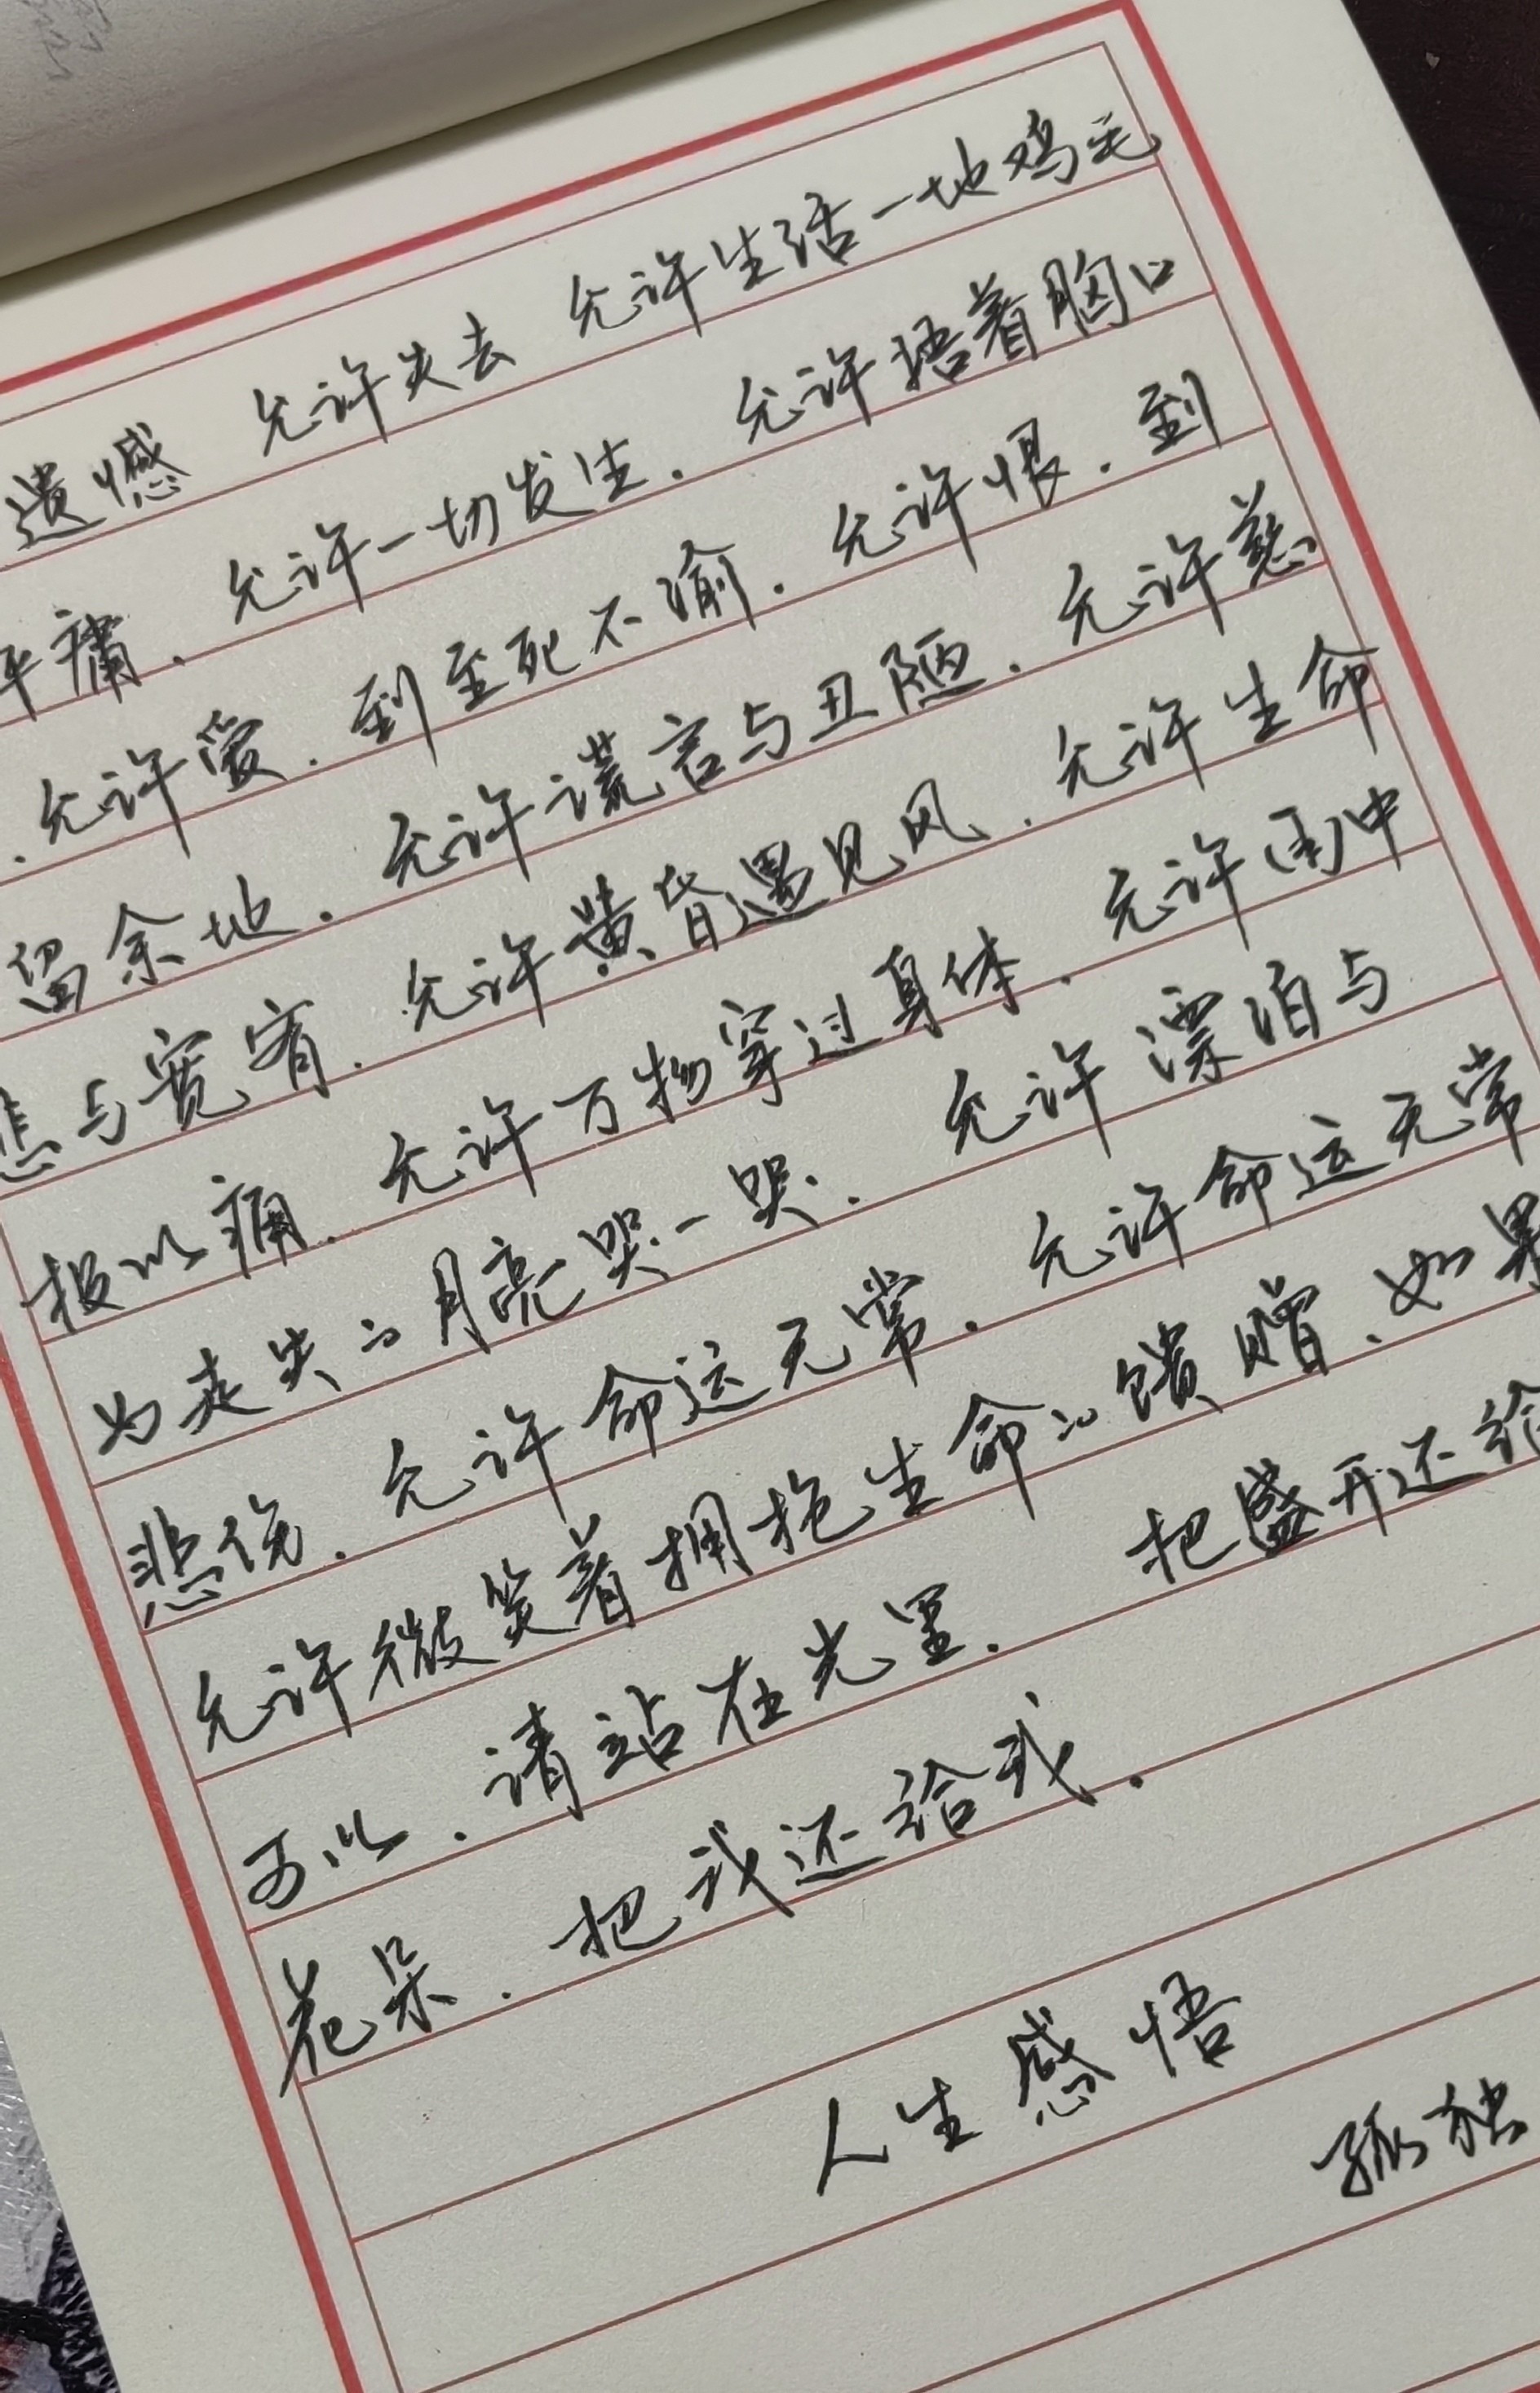 遗憾 允许失去 允许生活一地鸡毛
平庸、允许一切发生. 允许捂着胸口
、允许爱. 到至死不渝. 允许恨. 到
留余地. 允许谎言与丑陋. 允许慈
悲与宽宥. 允许黄昏遇见风. 允许生命
报以痛. 允许万物穿过身体. 允许雨中
为走失的月亮哭一哭. 允许漂泊与
悲伤. 允许命运无常. 允许命运无常
允许微笑着拥抱生命的馈赠、如果
可以. 请站在光里. 把盛开还给
花朵. 把我还给我.
人生感悟
孤独